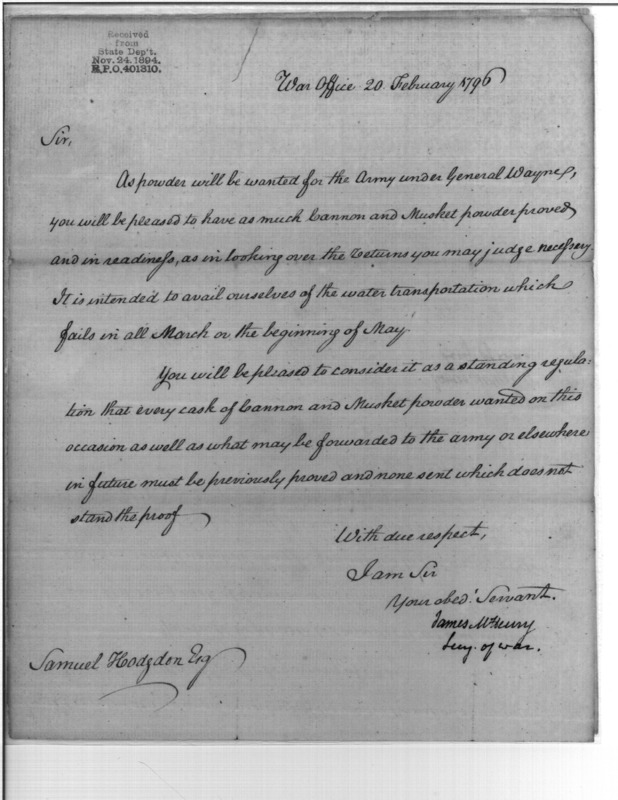 Received
from
State Dep't.
Nov. 24. 1894.
R.P.O. 401310.
War Office 20 February 1796
Sir,
As powder will be wanted for the Army under General Wayne,
you will be pleased to have as much Cannon and Musket powder proved
and in readiness, as in looking over the returns you may judge necessery
It is intended to avail ourselves of the water transportation which
fails in all March or the beginning of May.
You will be pleased to consider it as a standing regula-
tion that every cask of Cannon and Musket powder wanted on this
occasion as well as what may be forwarded to the army or elsewhere
in future must be previously proved and none sent which does not
stand the proof
With due respect,
I am Sir
Your obed.t Servant.
James McHenry
Secy. of war.
Samuel Hodgdon Esq